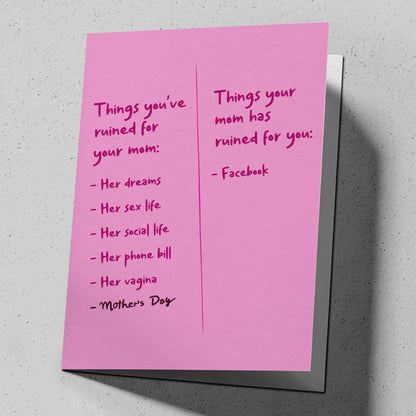 Things you've
ruined for
your mom:
- Her dreams
- Her sex life
- Her social life
- Her phone bill
- Her vagina
- Mother's Day
Things your
mom has
ruined for you:
- Facebook